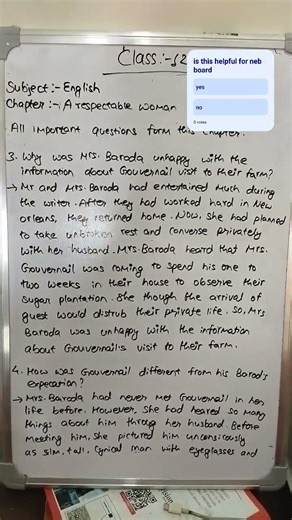 Class:- 12
is this helpful for neb board
yes
no
0 votes
Subject:- English
Chapter:- A respectable woman
All important questions form this chapter.
3. Why was Mrs. Baroda unhappy with the
information about Gouvernail visit to their farm?
→ Mr and Mrs. Baroda had entertained much during
the writer. After they had worked hard in New
orleans, they returned home. Now, she had planned
to take unbroken rest and converse privately
with her husband. Mrs. Baroda heard that Mrs.
Gouvernail was coming to spend his one to
two weeks in their house to observe their
Sugar plantation. She though the arrival of
guest would distrub their private life. So, Mrs
Baroda was unhappy with the information
about Gouvernail's visit to their farm.
4. How was Gouvernail different from his Barod's
expecation?
→ Mrs. Baroda had never met Gouvernail in her
life before. However, She had heared so many
things about him throug her husband. Before
meeting him, she pictured him unconsicously
as slim, tall, Cynical man with eyeglasses and